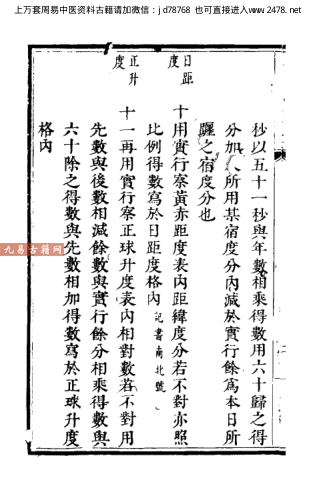 上万套周易中医资料古籍请加微信：jd78768 也可直接进入www.2478.net
秒以五十一秒與年數相乘得數用六十歸之得
分加入所用某宿度分內減於實行餘爲本日所
躔之宿度分也
日距度
十用實行察黃赤距度表內距緯度分若不對亦照
比例得數寫於日距度格內記書南北號
正升度
十一再用實行察正球升度表內相對數若不對用
先數與後數相減餘數與實行餘分相乘得數與
六十除之得數與先數相加得數寫於正球升度
格內
九易古籍网